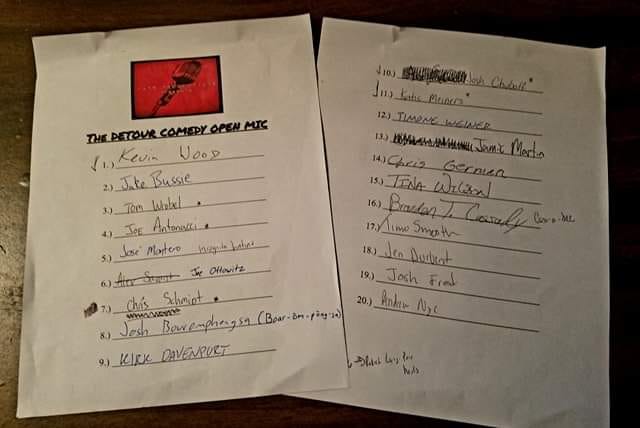 THE DETOUR COMEDY OPEN MIC
√ 1.) Kevin Wood
2.) Jake Bussie
3.) Tom Wobel •
4.) Joe Antonucci •
5.) José Montero
6.) Joe Ottowitz
7.) Chris Schmidt •
8.) Josh (Boar-Bom-pong-sa)
9.) KIRK DAVENPORT
√ 10.) Josh *
√ 11.) Katie Meiners *
12.) TIMONE WEINER
13.) Jamie Martin
14.) Chris German
15.) TINA WILSON
16.) Brandon T.
17.) Timo Smooth
18.) Jen Durbent
19.) Josh
20.) Andrew Nyc